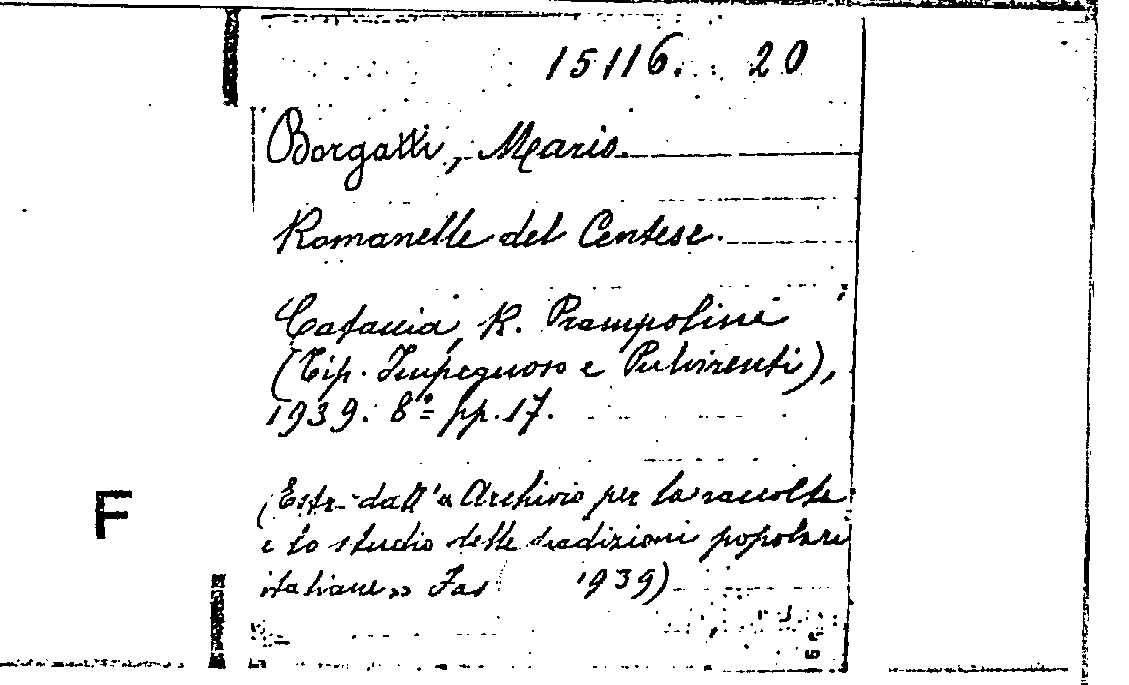 15116. 20
Borgatti, Mario.
Romanelle del Centese.
Catania, R. Prampolini
(Tip. Impegnoso e Pulvirenti),
1939. 8º pp. 17.
F
(Estr. dall'« Archivio per la raccolta
e lo studio delle tradizioni popolari
italiane » Fas 1939)